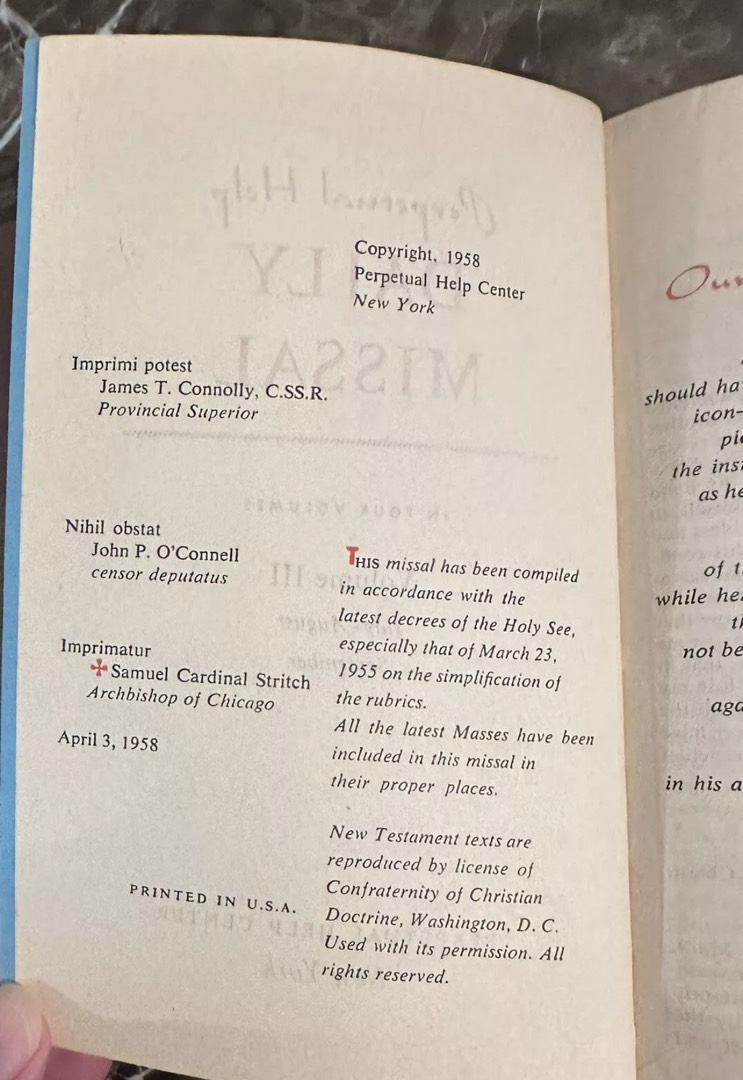 Copyright, 1958
Perpetual Help Center
New York
Imprimi potest
James T. Connolly, C.SS.R.
Provincial Superior
Nihil obstat
John P. O'Connell
censor deputatus
Imprimatur
✠ Samuel Cardinal Stritch
Archbishop of Chicago
April 3, 1958
PRINTED IN U.S.A.
THIS missal has been compiled
in accordance with the
latest decrees of the Holy See,
especially that of March 23,
1955 on the simplification of
the rubrics.
All the latest Masses have been
included in this missal in
their proper places.
New Testament texts are
reproduced by license of
Confraternity of Christian
Doctrine, Washington, D. C.
Used with its permission. All
rights reserved.
should
icon-
the
as
of
while
not
in his